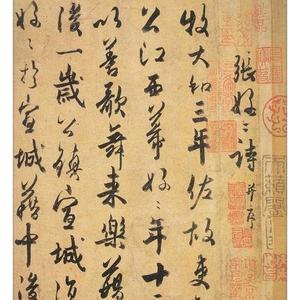 張好〻詩并序
牧大和三年佐故吏
公江西幕好〻年十
以善歌舞来樂籍
後一歲公鎮宣城復
好〻於宣城籍中後